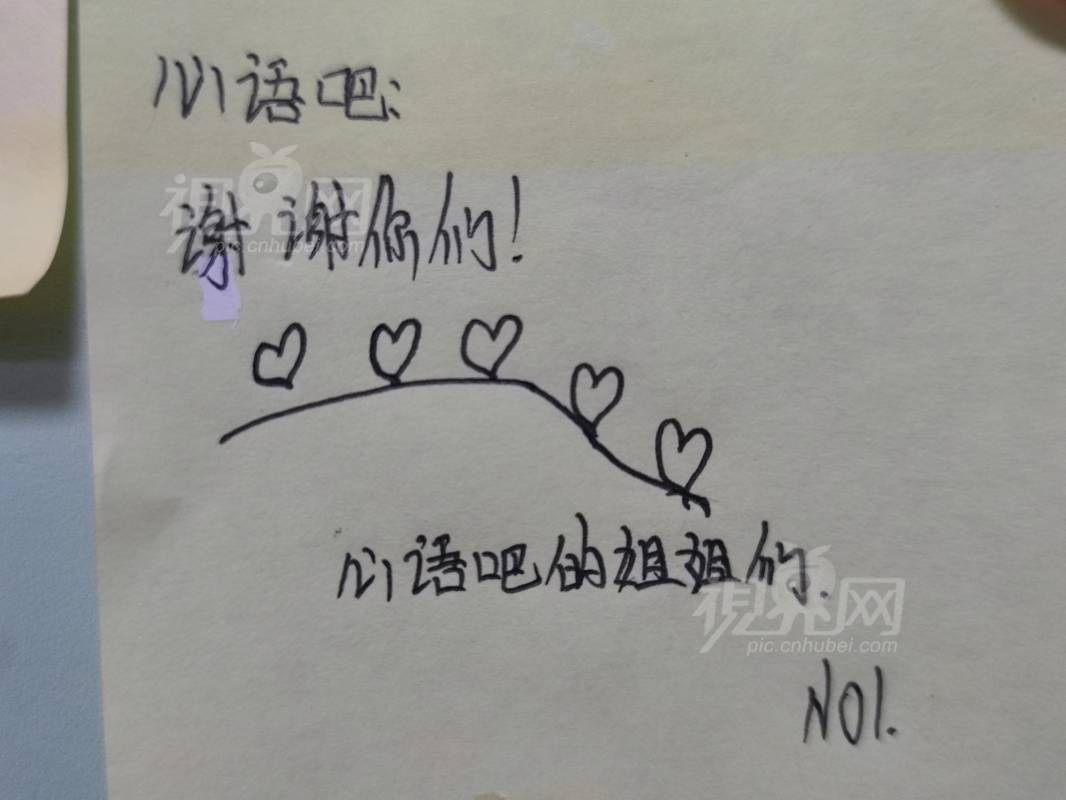 心语吧:
谢谢你们!
心语吧的姐姐们.
NO1.
視界网
pic.cnhubei.com
視界网
pic.cnhubei.com